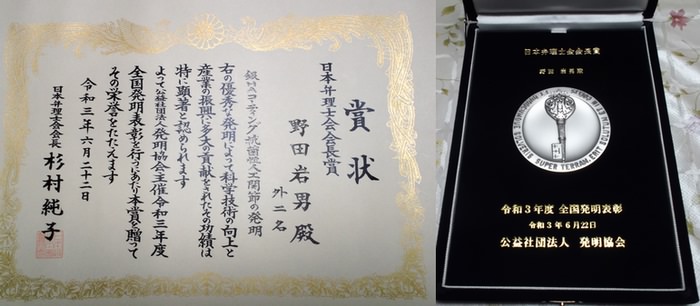 賞状
日本弁理士会会長賞
野田岩男殿
外二名
銀HAコーティング抗菌性人工関節の発明
右の優秀な発明によって科学技術の向上と
産業の振興に多大の貢献をされたその功績は
特に顕著と認められます
よって公益社団法人発明協会主催令和三年度
全国発明表彰を行うにあたり本賞を贈って
その栄誉をたたえます
令和三年六月二十二日
日本弁理士会会長 杉村純子
日本弁理士会会長賞
野田 岩男殿
SUPER TERRAM ERIT
令和3年度 全国発明表彰
令和3年6月22日
公益社団法人 発明協会